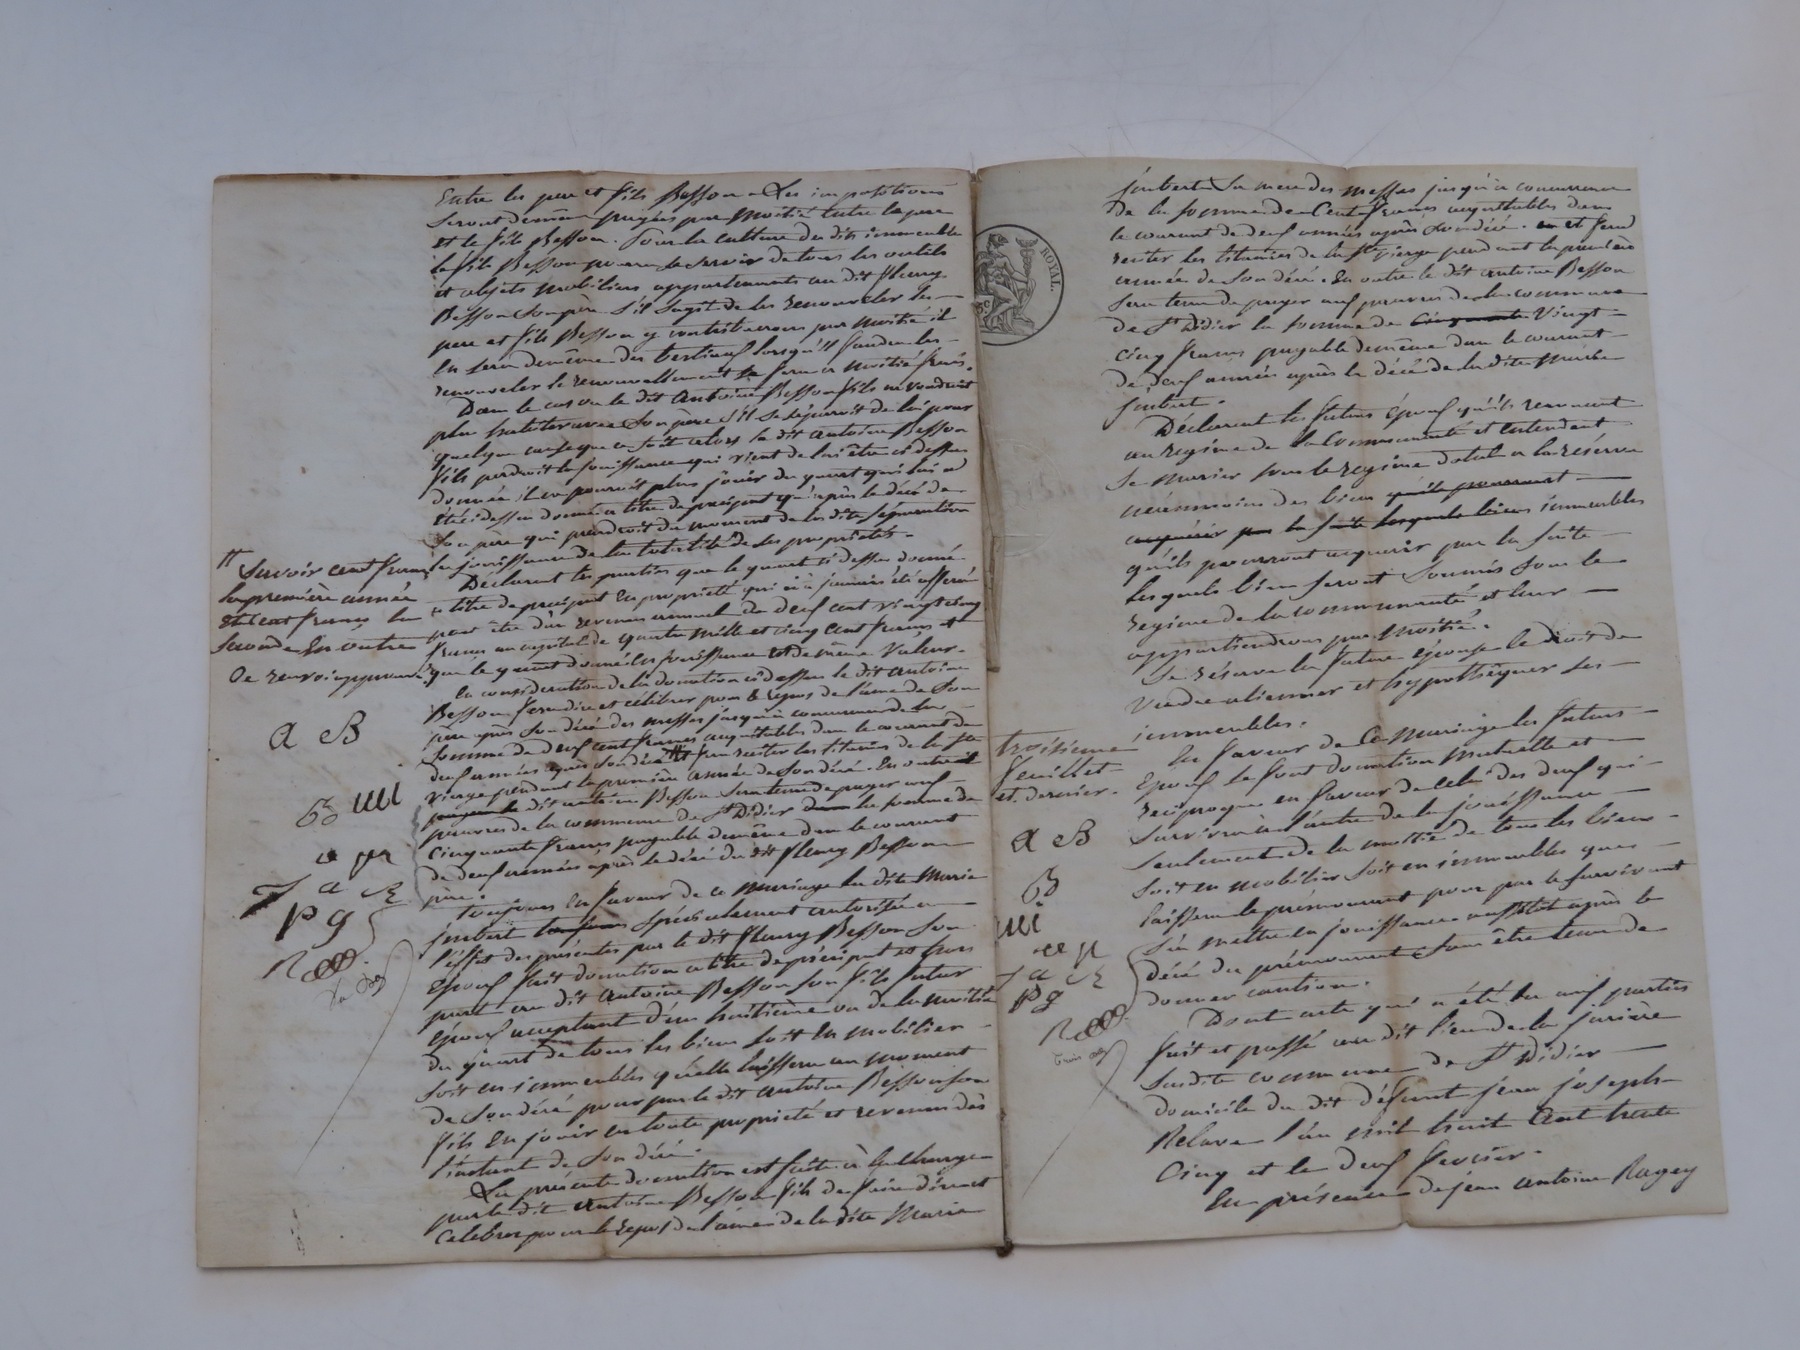 Entre les pere et fils Besson. Les impositions
seront de même payées par moitié entre le pere
et le fils Besson. Pour la culture des dits immeubles
le fils Besson pourra se servir de tous les outils
et objets mobiliers appartenants au dit fleury
Besson son père s'il s'agit de les renouveler les
pere et fils Besson y contribueront par moitié il
en sera de même des bestiaux lorsqu'il faudra les
renouveler le renouvellement se fera à moitié frais.
Dans le cas ou le dit antoine Besson fils ne voudrait
plus habiter avec son père s'il se séparoit de lui pour
quelque cause que ce soit alors le dit antoine Besson
fils perdroit la jouissance qui vient de lui être ci dessus
donnée il ne pourroit plus jouir du quart qui lui a
été ci dessus donné à titre de préciput qu'après le décé de
son père qui prendroit du moment de la dite séparation
la jouissance de la totalité de ses propriétés.
Déclarent les parties que le quart ci dessus donné
à titre de préciput en propriété qui à jamais été affermé
peut être d'un revenu annuel de deux cent vingt cinq
francs au capital de quatre mille et cinq cent francs et
que le quart donné en jouissance est de même valeur.
En considération de la donation ci dessus le dit antoine
Besson fera dire et célébrer pour le repos de l'ame de son
père après son décé des messes jusqu'à concurrence de la
somme de deux cent francs acquitables dans le courant de
deux années après son décé fera réciter les litanies de la Ste
vierge pendant la première année de son décé. En outre
le dit antoine Besson sera tenu de payer aux
pauvres de la commune de St Didier la somme de
cinquante francs payable de même dans le courant
de deux années après le décé du dit fleury Besson
père.
Toujours en faveur de ce mariage la dite Marie
jimbert spécialement autorisée à
l'effet des présentes par le dit fleury Besson son
époux fait donation à titre de préciput et hors
part au dit antoine Besson son fils futur
époux acceptant d'un huitième ou de la moitié
du quart de tous les biens soit en mobilier
soit en immeubles qu'elle laissera au moment
de son décé pour par le dit antoine Besson son
fils en jouir en toute propriété et revenu dès
l'instant de son décé.
La présente donation est faite à la charge
par le dit antoine Besson fils de faire dire et
celebrer pour le repos de l'ame de la dite Marie
tt Savoir cent francs
la première année
et cent francs la
seconde En outre
ce renvoi approuvé
a B
jimbert sa mere des messes jusqu'à concurrence
De la somme de Cent francs acquitables dans
le courant de deux années après son décé. et fera
reciter les litanies de la Ste vierge pendant la première
année de son décé. En outre le dit antoine Besson
sera tenu de payer aux pauvres de la commune
de St Didier la somme de cinquante vingt
cinq francs payable de même dans le courant
de deux années après le décé de la dite Marie
jimbert.
Déclarent les futurs époux qu'ils renoncent
au régime de la Communauté et entendent
se marier sous le regime dotal à la réserve
néanmoins des biens qu'ils pourront
acquérir par la suite lesquels biens immeubles
qu'ils pourront acquerir par la suite
lesquels biens seront soumis sous le
regime de la communauté et leur
appartiendrons par moitié.
Se réserve la future epouse le droit de
vendre alienner et hypothéquer ses
immeubles.
En faveur de ce Mariage les futurs
Epoux se font donation mutuelle et
réciproque en faveur de celui des deux qui
survivra à l'autre de la jouissance
seulement de la moitié de tous les biens
soit en mobilier soit en immeubles que
laissera le prémourant pour par le survivant
s'en mettre en jouissance aussitôt après le
décé du prémourant sans être tenu de
donner caution.
Dont acte qui a été lu aux parties
fait et passé au dit lieu de la
susdite commune de St Didier
domicile du dit défunt jean joseph
Relave l'an mil huit Cent trente
Cinq et le deux fevrier.
En présence de jean antoine Ragey
troisieme
feuillet
et dernier.
a B
ROYAL.